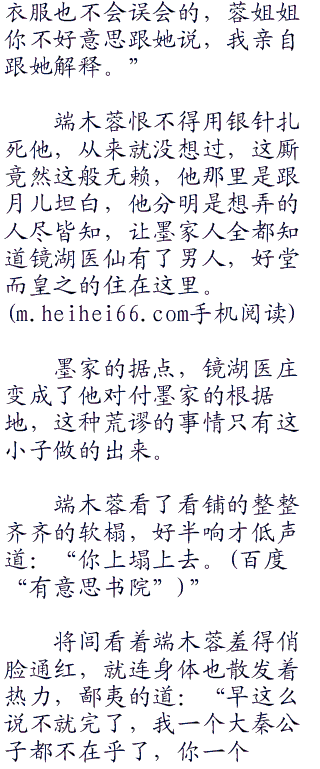 衣服也不会误会的，蓉姐姐
你不好意思跟她说，我亲自
跟她解释。”
端木蓉恨不得用银针扎
死他，从来就没想过，这厮
竟然这般无赖，他那里是跟
月儿坦白，他分明是想弄的
人尽皆知，让墨家人全都知
道镜湖医仙有了男人，好堂
而皇之的住在这里。
(m.heihei66.com手机阅读)
墨家的据点，镜湖医庄
变成了他对付墨家的根据
地，这种荒谬的事情只有这
小子做的出来。
端木蓉看了看铺的整整
齐齐的软榻，好半响才低声
道：“你上塌上去。(百度
“有意思书院”)”
将闾看着端木蓉羞得俏
脸通红，就连身体也散发着
热力，鄙夷的道：“早这么
说不就完了，我一个大秦公
子都不在乎了，你一个